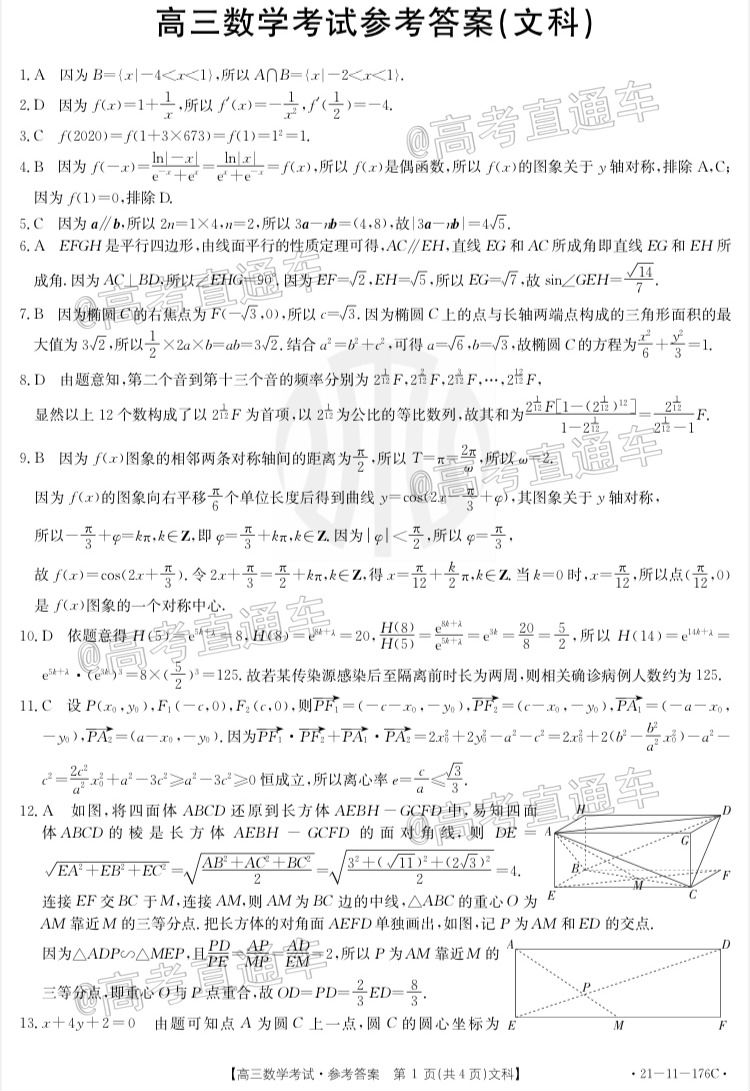 高三数学考试参考答案(文科)
1. A 因为 B={x|-4<x<1},所以 A∩B={x|-2<x<1}.
2. D 因为 f(x)=1+1/x,所以 f′(x)=-1/x²,f′(1/2)=-4.
3. C f(2020)=f(1+3×673)=f(1)=1²=1.
4. B 因为 f(-x)=ln|-x|/(e⁻ˣ+eˣ)=ln|x|/(eˣ+e⁻ˣ)=f(x),所以 f(x)是偶函数,所以 f(x)的图象关于 y 轴对称,排除 A,C;
因为 f(1)=0,排除 D.
5. C 因为 a∥b,所以 2n=1×4,n=2,所以 3a-nb=(4,8),故|3a-nb|=4√5.
6. A EFGH 是平行四边形,由线面平行的性质定理可得,AC∥EH,直线 EG 和 AC 所成角即直线 EG 和 EH 所
成角.因为 AC⊥BD,所以∠EHG=90°.因为 EF=√2,EH=√5,所以 EG=√7,故 sin∠GEH=√14/7.
7. B 因为椭圆 C 的右焦点为 F(-√3,0),所以 c=√3.因为椭圆 C 上的点与长轴两端点构成的三角形面积的最
大值为 3√2,所以 1/2×2a×b=ab=3√2.结合 a²=b²+c²,可得 a=√6,b=√3,故椭圆 C 的方程为 x²/6+y²/3=1.
8. D 由题意知,第二个音到第十三个音的频率分别为 2^(1/12)F,2^(2/12)F,2^(3/12)F,…,2^(12/12)F,
显然以上 12 个数构成了以 2^(1/12)F 为首项,以 2^(1/12)为公比的等比数列,故其和为 2^(1/12)F[1-(2^(1/12))¹²]/(1-2^(1/12))=2^(1/12)/(2^(1/12)-1)F.
9. B 因为 f(x)图象的相邻两条对称轴间的距离为 π/2,所以 T=π=2π/ω,所以 ω=2.
因为 f(x)的图象向右平移 π/6 个单位长度后得到曲线 y=cos(2x-π/3+φ),其图象关于 y 轴对称,
所以-π/3+φ=kπ,k∈Z,即 φ=π/3+kπ,k∈Z.因为|φ|<π/2,所以 φ=π/3,
故 f(x)=cos(2x+π/3).令 2x+π/3=π/2+kπ,k∈Z,得 x=π/12+k/2π,k∈Z.当 k=0 时,x=π/12,所以点(π/12,0)
是 f(x)图象的一个对称中心.
10. D 依题意得 H(5)=e^(5k+λ)=8,H(8)=e^(8k+λ)=20,H(8)/H(5)=e^(8k+λ)/e^(5k+λ)=e^(3k)=20/8=5/2,所以 H(14)=e^(14k+λ)=
e^(5k+λ)·(e^(3k))³=8×(5/2)³=125.故若某传染源感染后至隔离前时长为两周,则相关确诊病例人数约为 125.
11. C 设 P(x₀,y₀),F₁(-c,0),F₂(c,0),则PF₁→=(-c-x₀,-y₀),PF₂→=(c-x₀,-y₀),PA₁→=(-a-x₀,
-y₀),PA₂→=(a-x₀,-y₀).因为PF₁→·PF₂→+PA₁→·PA₂→=2x₀²+2y₀²-a²-c²=2x₀²+2(b²-b²/a²x₀²)-a²-
c²=2c²/a²x₀²+a²-3c²≥a²-3c²≥0 恒成立,所以离心率 e=c/a≤√3/3.
12. A 如图,将四面体 ABCD 还原到长方体 AEBH-GCFD 中,易知四面
体 ABCD 的棱是长方体 AEBH-GCFD 的面对角线,则 DE=
√(EA²+EB²+EC²)=√((AB²+AC²+BC²)/2)=√((3²+(√11)²+(2√3)²)/2)=4.
连接 EF 交 BC 于 M,连接 AM,则 AM 为 BC 边的中线,△ABC 的重心 O 为
AM 靠近 M 的三等分点.把长方体的对角面 AEFD 单独画出,如图,记 P 为 AM 和 ED 的交点.
因为△ADP∽△MEP,且PD/PE=AP/MP=AD/EM=2,所以 P 为 AM 靠近 M 的
三等分点,即重心 O 与 P 点重合,故 OD=PD=2/3ED=8/3.
H
D
A
G
B
F
M
E
C
A
D
P
E
M
F
13. x+4y+2=0 由题可知点 A 为圆 C 上一点,圆 C 的圆心坐标为
【高三数学考试·参考答案 第 1 页(共 4 页)文科】
·21-11-176C·
@高考直通车
@高考直通车
@高考直通车
@高考直通车
@高考直通车
@高考直通车